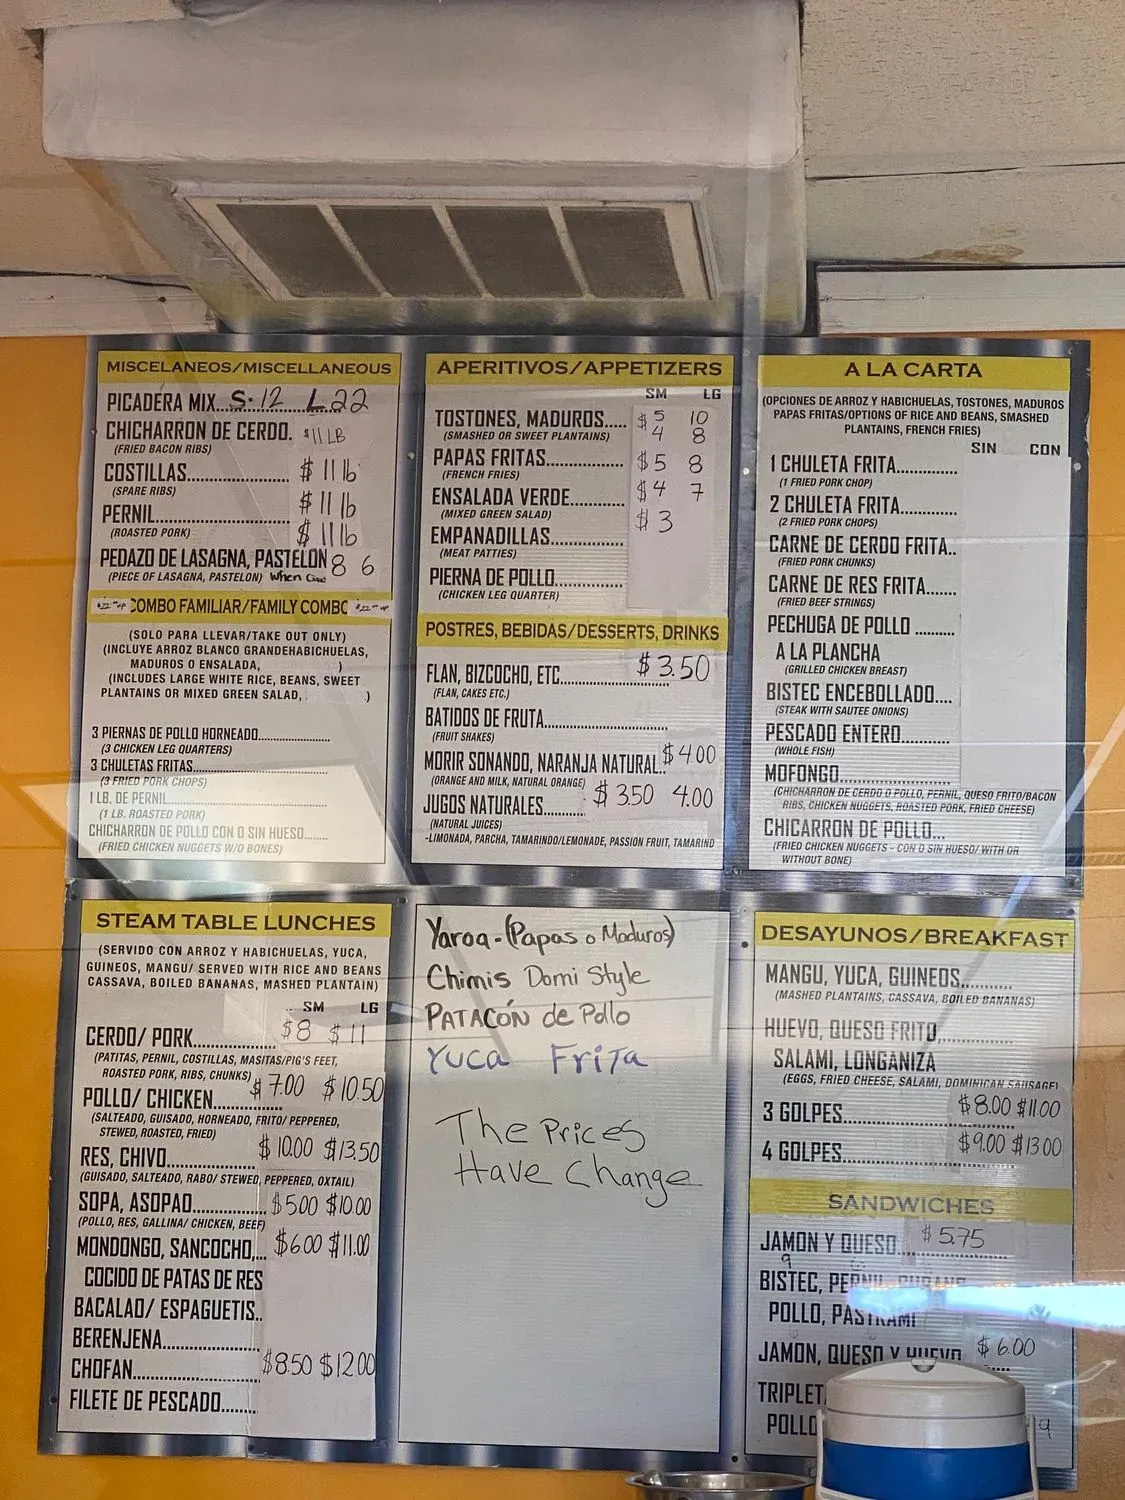 MISCELANEOS/MISCELLANEOUS
PICADERA MIX...S-12........L22
CHICHARRON DE CERDO. $11 LB
(FRIED BACON RIBS)
COSTILLAS.................. $11 lb
(SPARE RIBS)
PERNIL....................... $11 lb
(ROASTED PORK) $11 lb
PEDAZO DE LASAGNA, PASTELON 8 6
(PIECE OF LASAGNA, PASTELON) When
COMBO FAMILIAR/FAMILY COMBO
(SOLO PARA LLEVAR/TAKE OUT ONLY)
(INCLUYE ARROZ BLANCO GRANDEHABICHUELAS,
MADUROS O ENSALADA, )
(INCLUDES LARGE WHITE RICE, BEANS, SWEET
PLANTAINS OR MIXED GREEN SALAD, )
3 PIERNAS DE POLLO HORNEADO......................
(3 CHICKEN LEG QUARTERS)
3 CHULETAS FRITAS..............................
(3 FRIED PORK CHOPS)
1 LB. DE PERNIL....................................
(1 LB. ROASTED PORK)
CHICHARRON DE POLLO CON O SIN HUESO.......
(FRIED CHICKEN NUGGETS W/O BONES)
APERITIVOS/APPETIZERS
SM LG
TOSTONES, MADUROS..... $5 10
(SMASHED OR SWEET PLANTAINS) 4 8
PAPAS FRITAS............... $5 8
(FRENCH FRIES)
ENSALADA VERDE.......... $4 7
(MIXED GREEN SALAD)
$3
EMPANADILLAS..............
(MEAT PATTIES)
PIERNA DE POLLO............
(CHICKEN LEG QUARTER)
POSTRES, BEBIDAS/DESSERTS, DRINKS
FLAN, BIZCOCHO, ETC................... $3.50
(FLAN, CAKES ETC.)
BATIDOS DE FRUTA......................
(FRUIT SHAKES)
MORIR SONANDO, NARANJA NATURAL.. $4.00
(ORANGE AND MILK, NATURAL ORANGE)
JUGOS NATURALES....... $3.50 4.00
(NATURAL JUICES)
-LIMONADA, PARCHA, TAMARINDO/LEMONADE, PASSION FRUIT, TAMARIND
A LA CARTA
(OPCIONES DE ARROZ Y HABICHUELAS, TOSTONES, MADUROS
PAPAS FRITAS/OPTIONS OF RICE AND BEANS, SMASHED
PLANTAINS, FRENCH FRIES)
SIN CON
1 CHULETA FRITA............
(1 FRIED PORK CHOP)
2 CHULETA FRITA............
(2 FRIED PORK CHOPS)
CARNE DE CERDO FRITA..
(FRIED PORK CHUNKS)
CARNE DE RES FRITA.......
(FRIED BEEF STRINGS)
PECHUGA DE POLLO .........
A LA PLANCHA
(GRILLED CHICKEN BREAST)
BISTEC ENCEBOLLADO....
(STEAK WITH SAUTEE ONIONS)
PESCADO ENTERO...........
(WHOLE FISH)
MOFONGO......................
(CHICHARRON DE CERDO O POLLO, PERNIL, QUESO FRITO/BACON
RIBS, CHICKEN NUGGETS, ROASTED PORK, FRIED CHEESE)
CHICARRON DE POLLO...
(FRIED CHICKEN NUGGETS - CON O SIN HUESO/ WITH OR
WITHOUT BONE)
STEAM TABLE LUNCHES
(SERVIDO CON ARROZ Y HABICHUELAS, YUCA,
GUINEOS, MANGU/ SERVED WITH RICE AND BEANS
CASSAVA, BOILED BANANAS, MASHED PLANTAIN)
SM LG
CERDO/ PORK............. $8 $11
(PATITAS, PERNIL, COSTILLAS, MASITAS/PIG'S FEET,
ROASTED PORK, RIBS, CHUNKS)
POLLO/ CHICKEN........... $7.00 $10.50
(SALTEADO, GUISADO, HORNEADO, FRITO/ PEPPERED,
STEWED, ROASTED, FRIED)
RES, CHIVO.................. $10.00 $13.50
(GUISADO, SALTEADO, RABO/ STEWED, PEPPERED, OXTAIL)
SOPA, ASOPAO............ $5.00 $10.00
(POLLO, RES, GALLINA/ CHICKEN, BEEF)
MONDONGO, SANCOCHO,... $6.00 $11.00
COCIDO DE PATAS DE RES
BACALAO/ ESPAGUETIS..
BERENJENA..................
CHOFAN...................... $8.50 $12.00
FILETE DE PESCADO.......
Yaroa-(Papas o Maduros)
Chimis Domi Style
PATACÓN de Pollo
Yuca Frita
The Prices
Have Change
DESAYUNOS/BREAKFAST
MANGU, YUCA, GUINEOS...........
(MASHED PLANTAINS, CASSAVA, BOILED BANANAS)
HUEVO, QUESO FRITO,...............
SALAMI, LONGANIZA
(EGGS, FRIED CHEESE, SALAMI, DOMINICAN SAUSAGE)
3 GOLPES.................... $8.00 $11.00
4 GOLPES.................... $9.00 $13.00
SANDWICHES
JAMON Y QUESO.... $5.75
9
BISTEC, PERNIL,
POLLO, PASTRAMI
JAMON, QUESO Y HUEVO $6.00
TRIPLET
POLLO 9